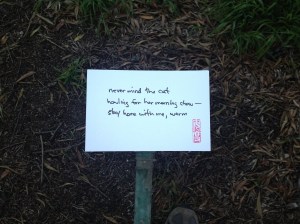 never mind the cat
howling for her morning chow —
stay here with me, warm